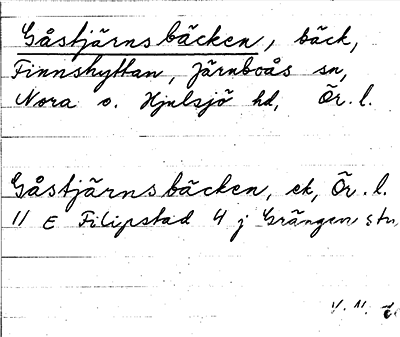 Gåstjärnsbäcken, bäck,
Finnshyttan, Järnboås sn,
Nora o. Hjulsjö hd, Ör. l.
Gåstjärnsbäcken, ek, Ör. l.
11 E Filipstad 4 j Grängen stn